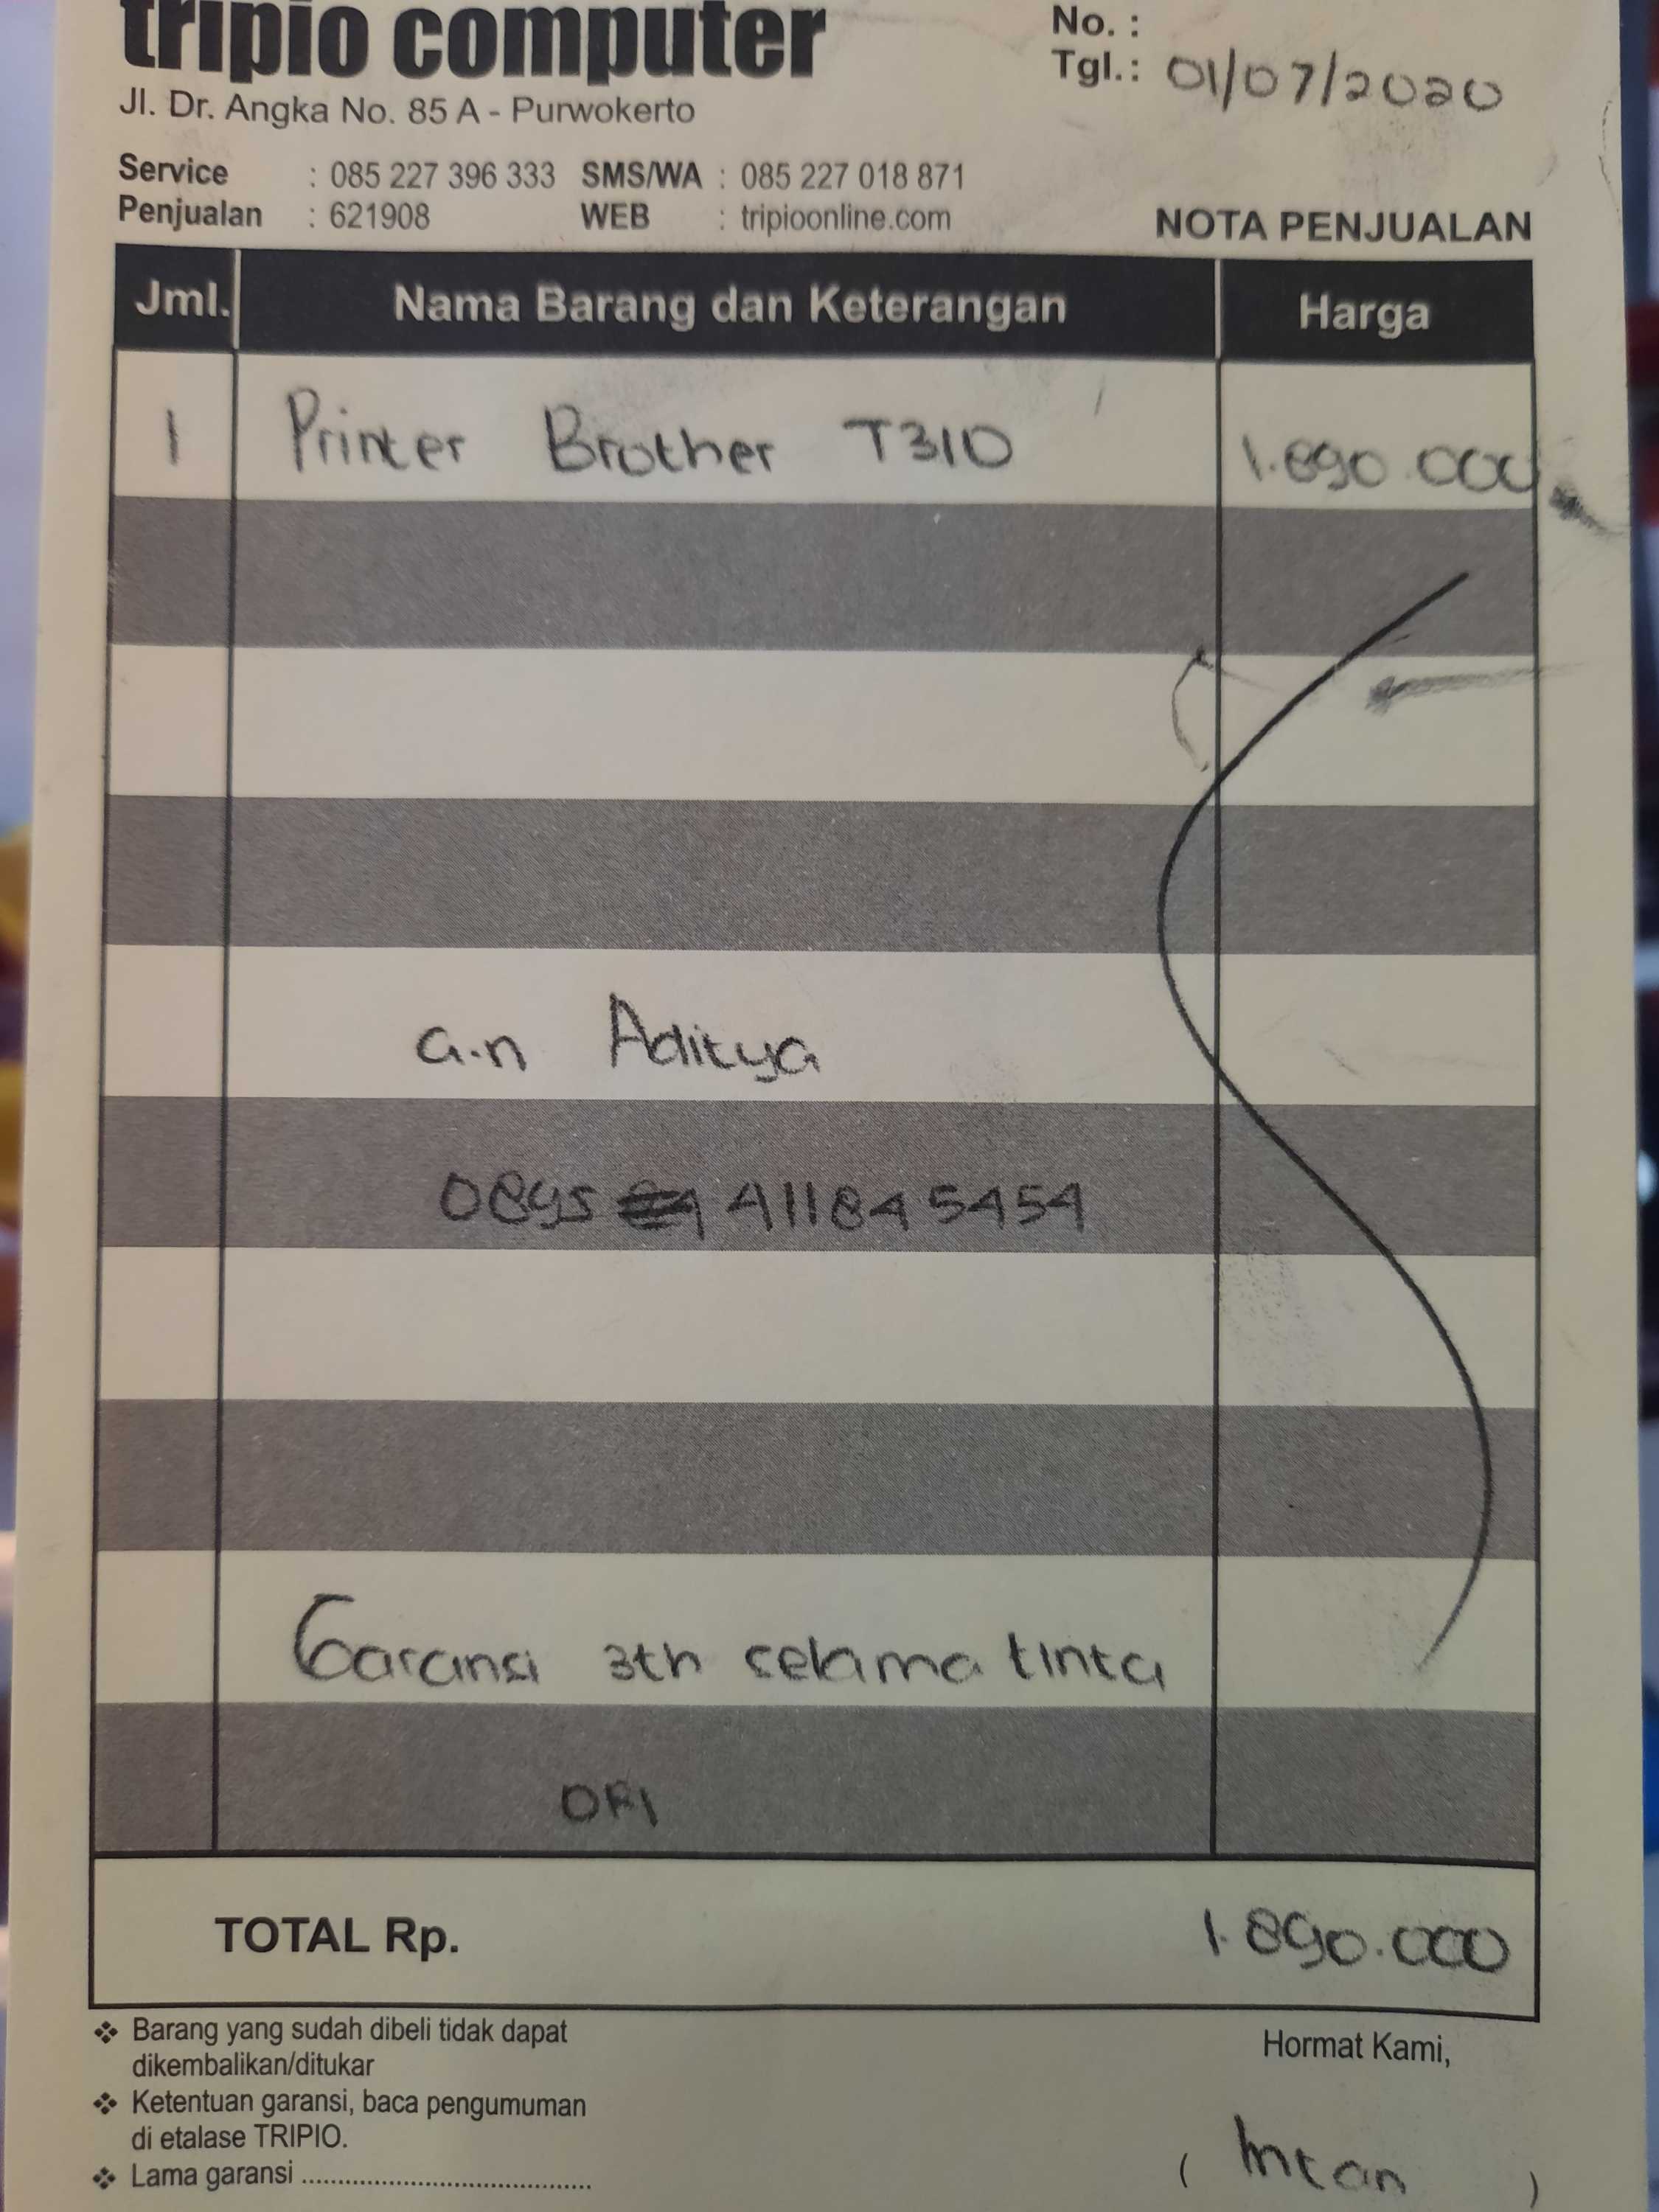 tripio computer
No. :
Tgl. : 01/07/2020
Jl. Dr. Angka No. 85 A - Purwokerto
Service : 085 227 396 333 SMS/WA : 085 227 018 871
Penjualan : 621908 WEB : tripioonline.com
NOTA PENJUALAN
Jml. Nama Barang dan Keterangan Harga
1 Printer Brother T310 1.890.000
a.n Aditya
0895 411845454
Garansi 3th selama tinta
ORI
TOTAL Rp. 1.890.000
❖ Barang yang sudah dibeli tidak dapat
dikembalikan/ditukar
❖ Ketentuan garansi, baca pengumuman
di etalase TRIPIO.
❖ Lama garansi ........................................
Hormat Kami,
( Intan )